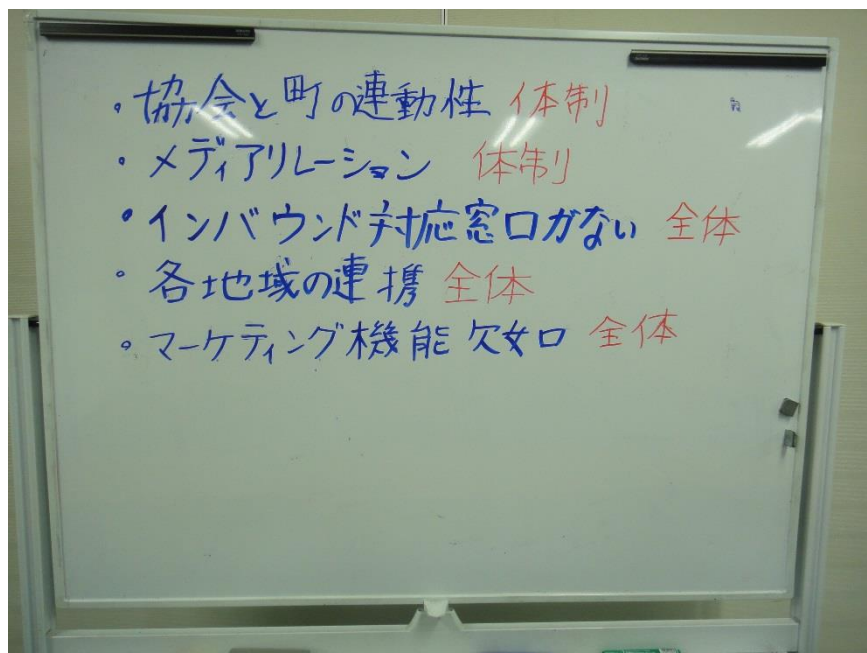 ・協会と町の連動性 体制
・メディアリレーション 体制
・インバウンド対応窓口がない 全体
・各地域の連携 全体
・マーケティング機能欠如 全体